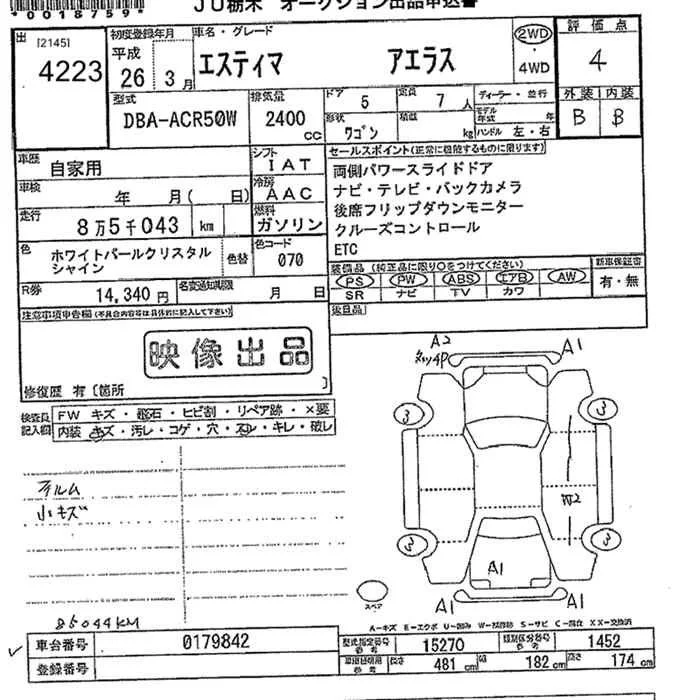 *0018759*
JU栃木 オークション出品申込書
出 [2145]
4223
初度登録年月
平成
26年 3月
車名・グレード
エスティマ アエラス
2WD
・
4WD
評価点
4
外装 内装
B B
型式
DBA-ACR50W
排気量
2400 cc
ドア 5
定員 7 人
形状 ワゴン
積載 kg
ディーラー・並行
モデル年式 年
ハンドル 左・右
車歴 自家用
シフト IAT
車検 年 月( 日)
冷房 AAC
走行 8万5千043 km
燃料 ガソリン
色 ホワイトパールクリスタル
シャイン
色替
色コード 070
R券 14,340 円
名変通知期限 月 日
セールスポイント(正常に機能するものに限ります)
両側パワースライドドア
ナビ・テレビ・バックカメラ
後席フリップダウンモニター
クルーズコントロール
ETC
装備品 (純正品に限り○をつけてください)
PS PW ABS エアB AW
SR ナビ TV カワ
新車保証書
有・無
後日品
注意事項申告欄(不具合内容は具体的に記入して下さい)
映像出品
修復歴 有 〔箇所 〕
検査員記入欄
FW キズ・飛石・ヒビ割・リペア跡・×要
内装 キズ・汚レ・コゲ・穴・スレ・キレ・破レ
フィルム
小キズ
85044KM
A2
A1
3
3
W2
3
3
A1
A1
A1
スペア
A-キズ E-エクボ U-凹み W-補修跡 S-サビ C-腐食 XX-交換済
車台番号 0179842
登録番号
型式指定番号 参考 15270
類別区分番号 参考 1452
車検証明用 参考 長さ 481 cm 幅 182 cm 高さ 174 cm